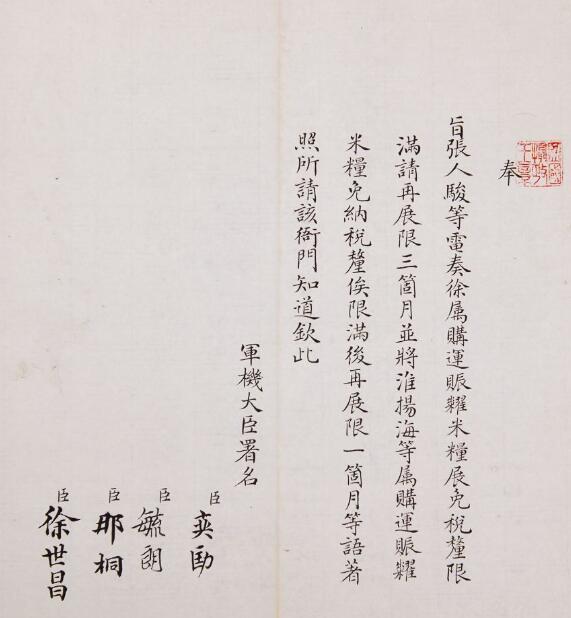 監國攝政王章
奉
旨張人駿等電奏徐属購運賑糶米糧展免稅釐限
滿請再展限三箇月並將淮揚海等属購運賑糶
米糧免納稅釐俟限滿後再展限一箇月等語著
照所請該衙門知道欽此
軍機大臣署名
臣奕劻
臣毓朗
臣那桐
臣徐世昌